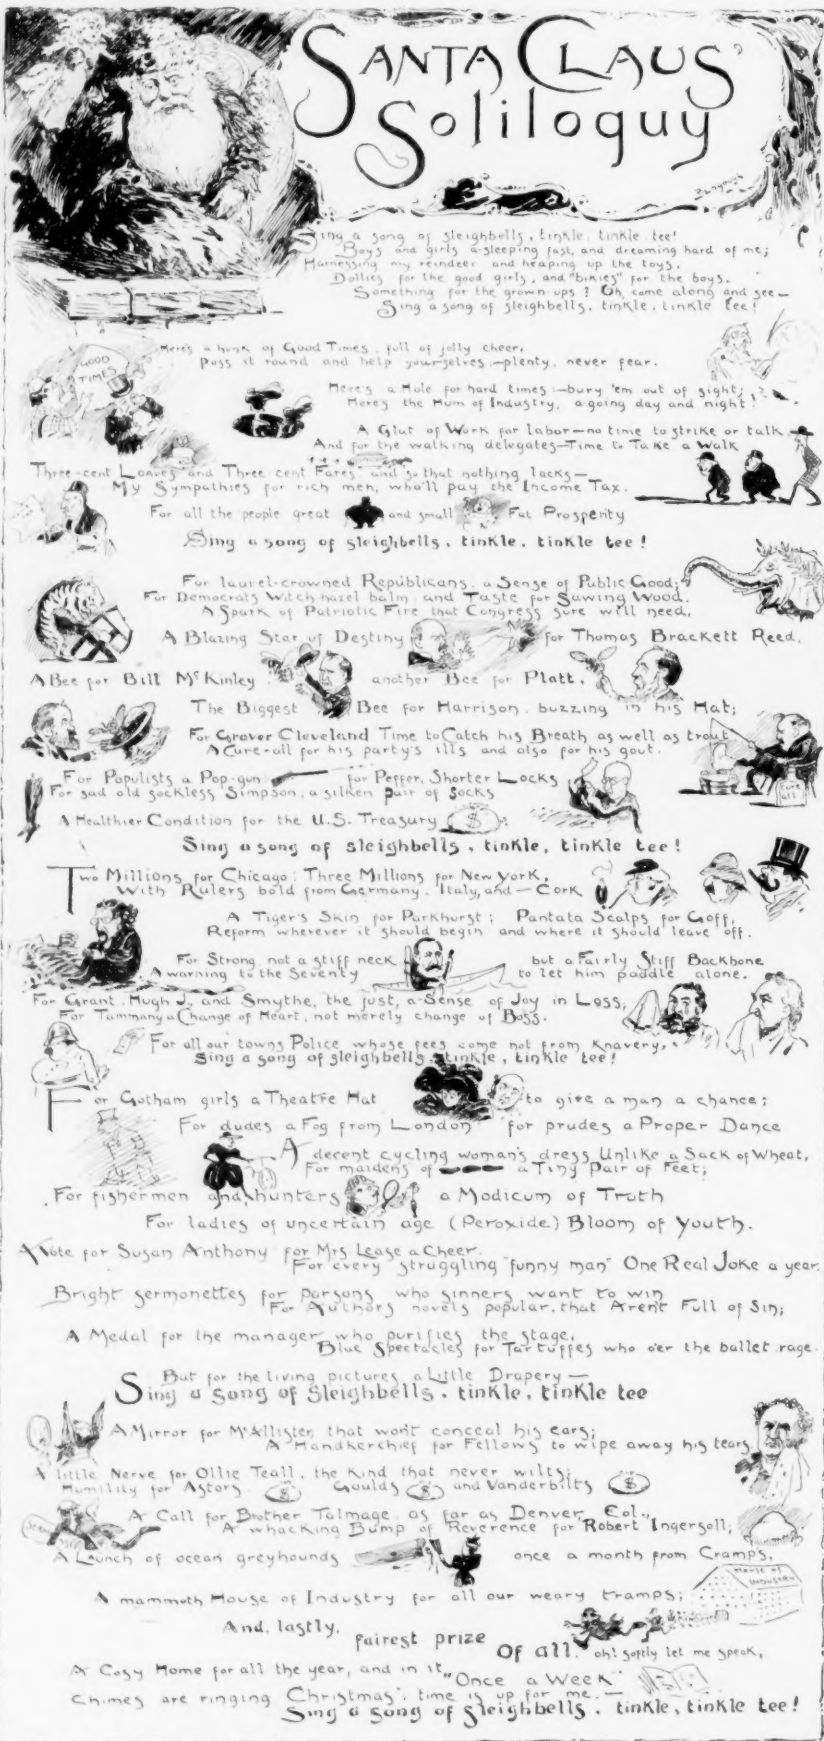 SANTA CLAUS'
Soliloquy
Sing a song of sleighbells, tinkle, tinkle tee!
Boys and girls a-sleeping fast, and dreaming hard of me;
Harnessing my reindeer and heaping up the toys,
Dollies for the good girls, and "bikies" for the boys.
Something for the grown ups? Oh, come along and see—
Sing a song of sleighbells, tinkle, tinkle tee!
Here's a hunk of Good Times, full of jolly cheer,
Pass it round and help yourselves—plenty, never fear.
GOOD TIMES
Here's a Hole for hard times—bury 'em out of sight;
Here's the Hum of Industry, a-going day and night!
A Glut of Work for labor—no time to strike or talk
And for the walking delegates—Time to Take a Walk
Three-cent Loaves and Three cent Fares, and so that nothing lacks—
My Sympathies for rich men, who'll pay the Income Tax.
For all the people great and small Fat Prosperity
Sing a song of sleighbells, tinkle, tinkle tee!
For laurel-crowned Republicans, a Sense of Public Good;
For Democrats Witch-hazel balm, and Taste for Sawing Wood.
A Spark of Patriotic Fire that Congress sure will need,
A Blazing Star of Destiny for Thomas Brackett Reed,
A Bee for Bill McKinley another Bee for Platt,
The Biggest Bee for Harrison, buzzing in his Hat;
For Grover Cleveland Time to Catch his Breath as well as trout
A Cure-all for his party's ills and also for his gout.
Cure all
For Populists a Pop-gun for Peffer, Shorter Locks
For sad old sockless Simpson, a silken pair of socks
A Healthier Condition for the U.S. Treasury $;
Sing a song of sleighbells, tinkle, tinkle tee!
Two Millions for Chicago: Three Millions for New York,
With Rulers bold from Germany, Italy, and—Cork
A Tiger's Skin for Parkhurst; Pantata Scalps for Goff,
Reform wherever it should begin and where it should leave off.
For Strong, not a stiff neck but a Fairly Stiff Backbone
A warning to the Seventy to let him paddle alone.
For Grant, Hugh J., and Smythe, the just, a Sense of Joy in Loss,
For Tammany a Change of Heart, not merely change of Boss.
For all our towns Police whose fees come not from Knavery,
Sing a song of sleighbells, tinkle, tinkle tee!
For Gotham girls a Theatre Hat to give a man a chance;
For dudes a Fog from London for prudes a Proper Dance
A decent cycling woman's dress Unlike a Sack of Wheat,
For maidens of a Tiny Pair of Feet;
For fishermen and hunters a Modicum of Truth
For ladies of uncertain age (Peroxide) Bloom of Youth.
A Vote for Susan Anthony for Mrs Lease a Cheer.
For every struggling "funny man" One Real Joke a year.
Bright sermonettes for parsons who sinners want to win
For Authors novels popular, that Aren't Full of Sin;
A Medal for the manager who purifies the stage,
Blue Spectacles for Tartuffes who o'er the ballet rage.
But for the living pictures a Little Drapery—
Sing a song of sleighbells, tinkle, tinkle tee
A Mirror for McAllister, that won't conceal his ears;
A Handkerchief for Fellows to wipe away his tears
A little Nerve for Ollie Teall, the kind that never wilts;
Humility for Astors $ Goulds $ and Vanderbilts $
A Call for Brother Talmage as far as Denver, Col.,
A whacking Bump of Reverence for Robert Ingersoll;
A Launch of ocean greyhounds once a month from Cramps,
A mammoth House of Industry for all our weary tramps;
House of Industry
And, lastly, fairest prize Of all, oh! softly let me speak,
A Cosy Home for all the year, and in it "Once a Week"
Chimes are ringing Christmas; time is up for me,—
Sing a song of sleighbells, tinkle, tinkle tee!